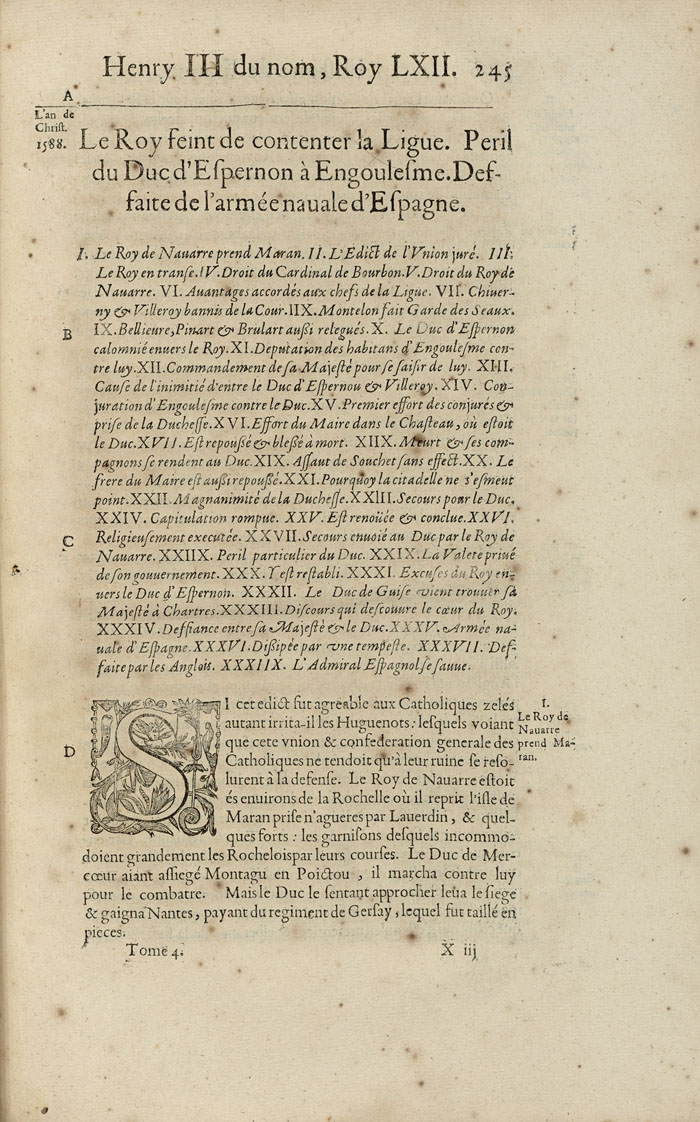 Henry III du nom, Roy LXII. 245
A
L'an de
Christ.
1588.
Le Roy feint de contenter la Ligue. Peril
du Duc d'Eſpernon à Engouleſme. Def-
faite de l'armée nauale d'Eſpagne.
I. Le Roy de Nauarre prend Maran. II. L'Edict de l'Vnion juré. III.
Le Roy en transe. IV. Droit du Cardinal de Bourbon. V. Droit du Roy de
Nauarre. VI. Auantages accordés aux chefs de la Ligue. VII. Chiuer-
ny & Villeroy bannis de la Cour. IIX. Montelon fait Garde des Seaux.
B
IX. Bellieure, Pinart & Brulart auſſi relegués. X. Le Duc d'Eſpernon
calomnié enuers le Roy. XI. Deputation des habitans d'Engouleſme con-
tre luy. XII. Commandement de ſa Majeſté pour ſe ſaiſir de luy. XIII.
Cauſe de l'inimitié d'entre le Duc d'Eſpernou & Villeroy. XIV. Con-
juration d'Engouleſme contre le Duc. XV. Premier effort des conjurés &
priſe de la Ducheſſe. XVI. Effort du Maire dans le Chaſteau, où eſtoit
le Duc. XVII. Eſt repouſſé & bleſſé à mort. XIIX. Meurt & ſes com-
pagnons ſe rendent au Duc. XIX. Aſſaut de Souchet ſans effect. XX. Le
frere du Maire eſt auſſi repouſſé. XXI. Pourquoy la citadelle ne s'eſmeut
point. XXII. Magnanimité de la Ducheſſe. XXIII. Secours pour le Duc.
XXIV. Capitulation rompue. XXV. Eſt renoüée & conclue. XXVI.
C
Religieuſement executée. XXVII. Secours enuoié au Duc par le Roy de
Nauarre. XXIIX. Peril particulier du Duc. XXIX. La Valete priué
de ſon gouuernement. XXX. Y eſt reſtabli. XXXI. Excuſes du Roy en-
uers le Duc d'Eſpernon. XXXII. Le Duc de Guiſe vient trouuer ſa
Majeſté à Chartres. XXXIII. Diſcours qui deſcouure le cœur du Roy.
XXXIV. Deffiance entre ſa Majeſté & le Duc. XXXV. Armée na-
uale d'Eſpagne. XXXVI. Diſſipée par vne tempeſte. XXXVII. Def-
faite par les Anglois. XXXIIX. L'Admiral Eſpagnol ſe ſauue.
SI cet edict fut agreable aux Catholiques zelés
autant irrita-il les Huguenots: leſquels voiant
D
que cete vnion & confederation generale des
Catholiques ne tendoit qu'à leur ruine ſe reſo-
lurent à la defenſe. Le Roy de Nauarre eſtoit
és enuirons de la Rochelle où il reprit l'iſle de
Maran priſe n'agueres par Lauerdin, & quel-
ques forts : les garniſons deſquels incommo-
doient grandement les Rochelois par leurs courſes. Le Duc de Mer-
cœur aiant aſſiegé Montagu en Poictou , il marcha contre luy
pour le combatre. Mais le Duc le ſentant approcher leua le ſiege
& gaigna Nantes, payant du regiment de Gerſay, lequel fut taillé en
pieces.
I.
Le Roy de
Nauarre
prend Ma-
ran.
Tome 4.
X iij